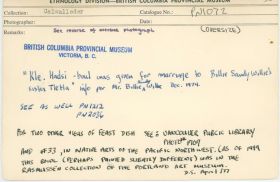 ETHNOLOGY DIVISION—BRITISH COLUMBIA PROVINCIAL MUSEUM
Collection:
Catalogue No.:
PN1072
Photographer:
Date:
Remarks:
See reverse of
photograph
(OVERSIZE)
BRITISH COLUMBIA PROVINCIAL MUSEUM
VICTORIA, B.C.
was given for marriage to Billie Sandy Willie's
sister
info per Mr. Billie Willie Dec. 1974.
SEE AS WELL PN1212
PN2036
FOR TWO OTHER VIEWS OF FEAST DISH SEE: VANCOUVER PUBLIC LIBRARY
PHOTO
AND #33, IN NATIVE ARTS OF THE PACIFIC NORTHWEST. (AS OF 1949
THIS BOWL (PERHAPS PAINTED SLIGHTLY DIFFERENTLY) WAS IN THE
RASMUSSEN COLLECTION OF THE PORTLAND ART MUSEUM.